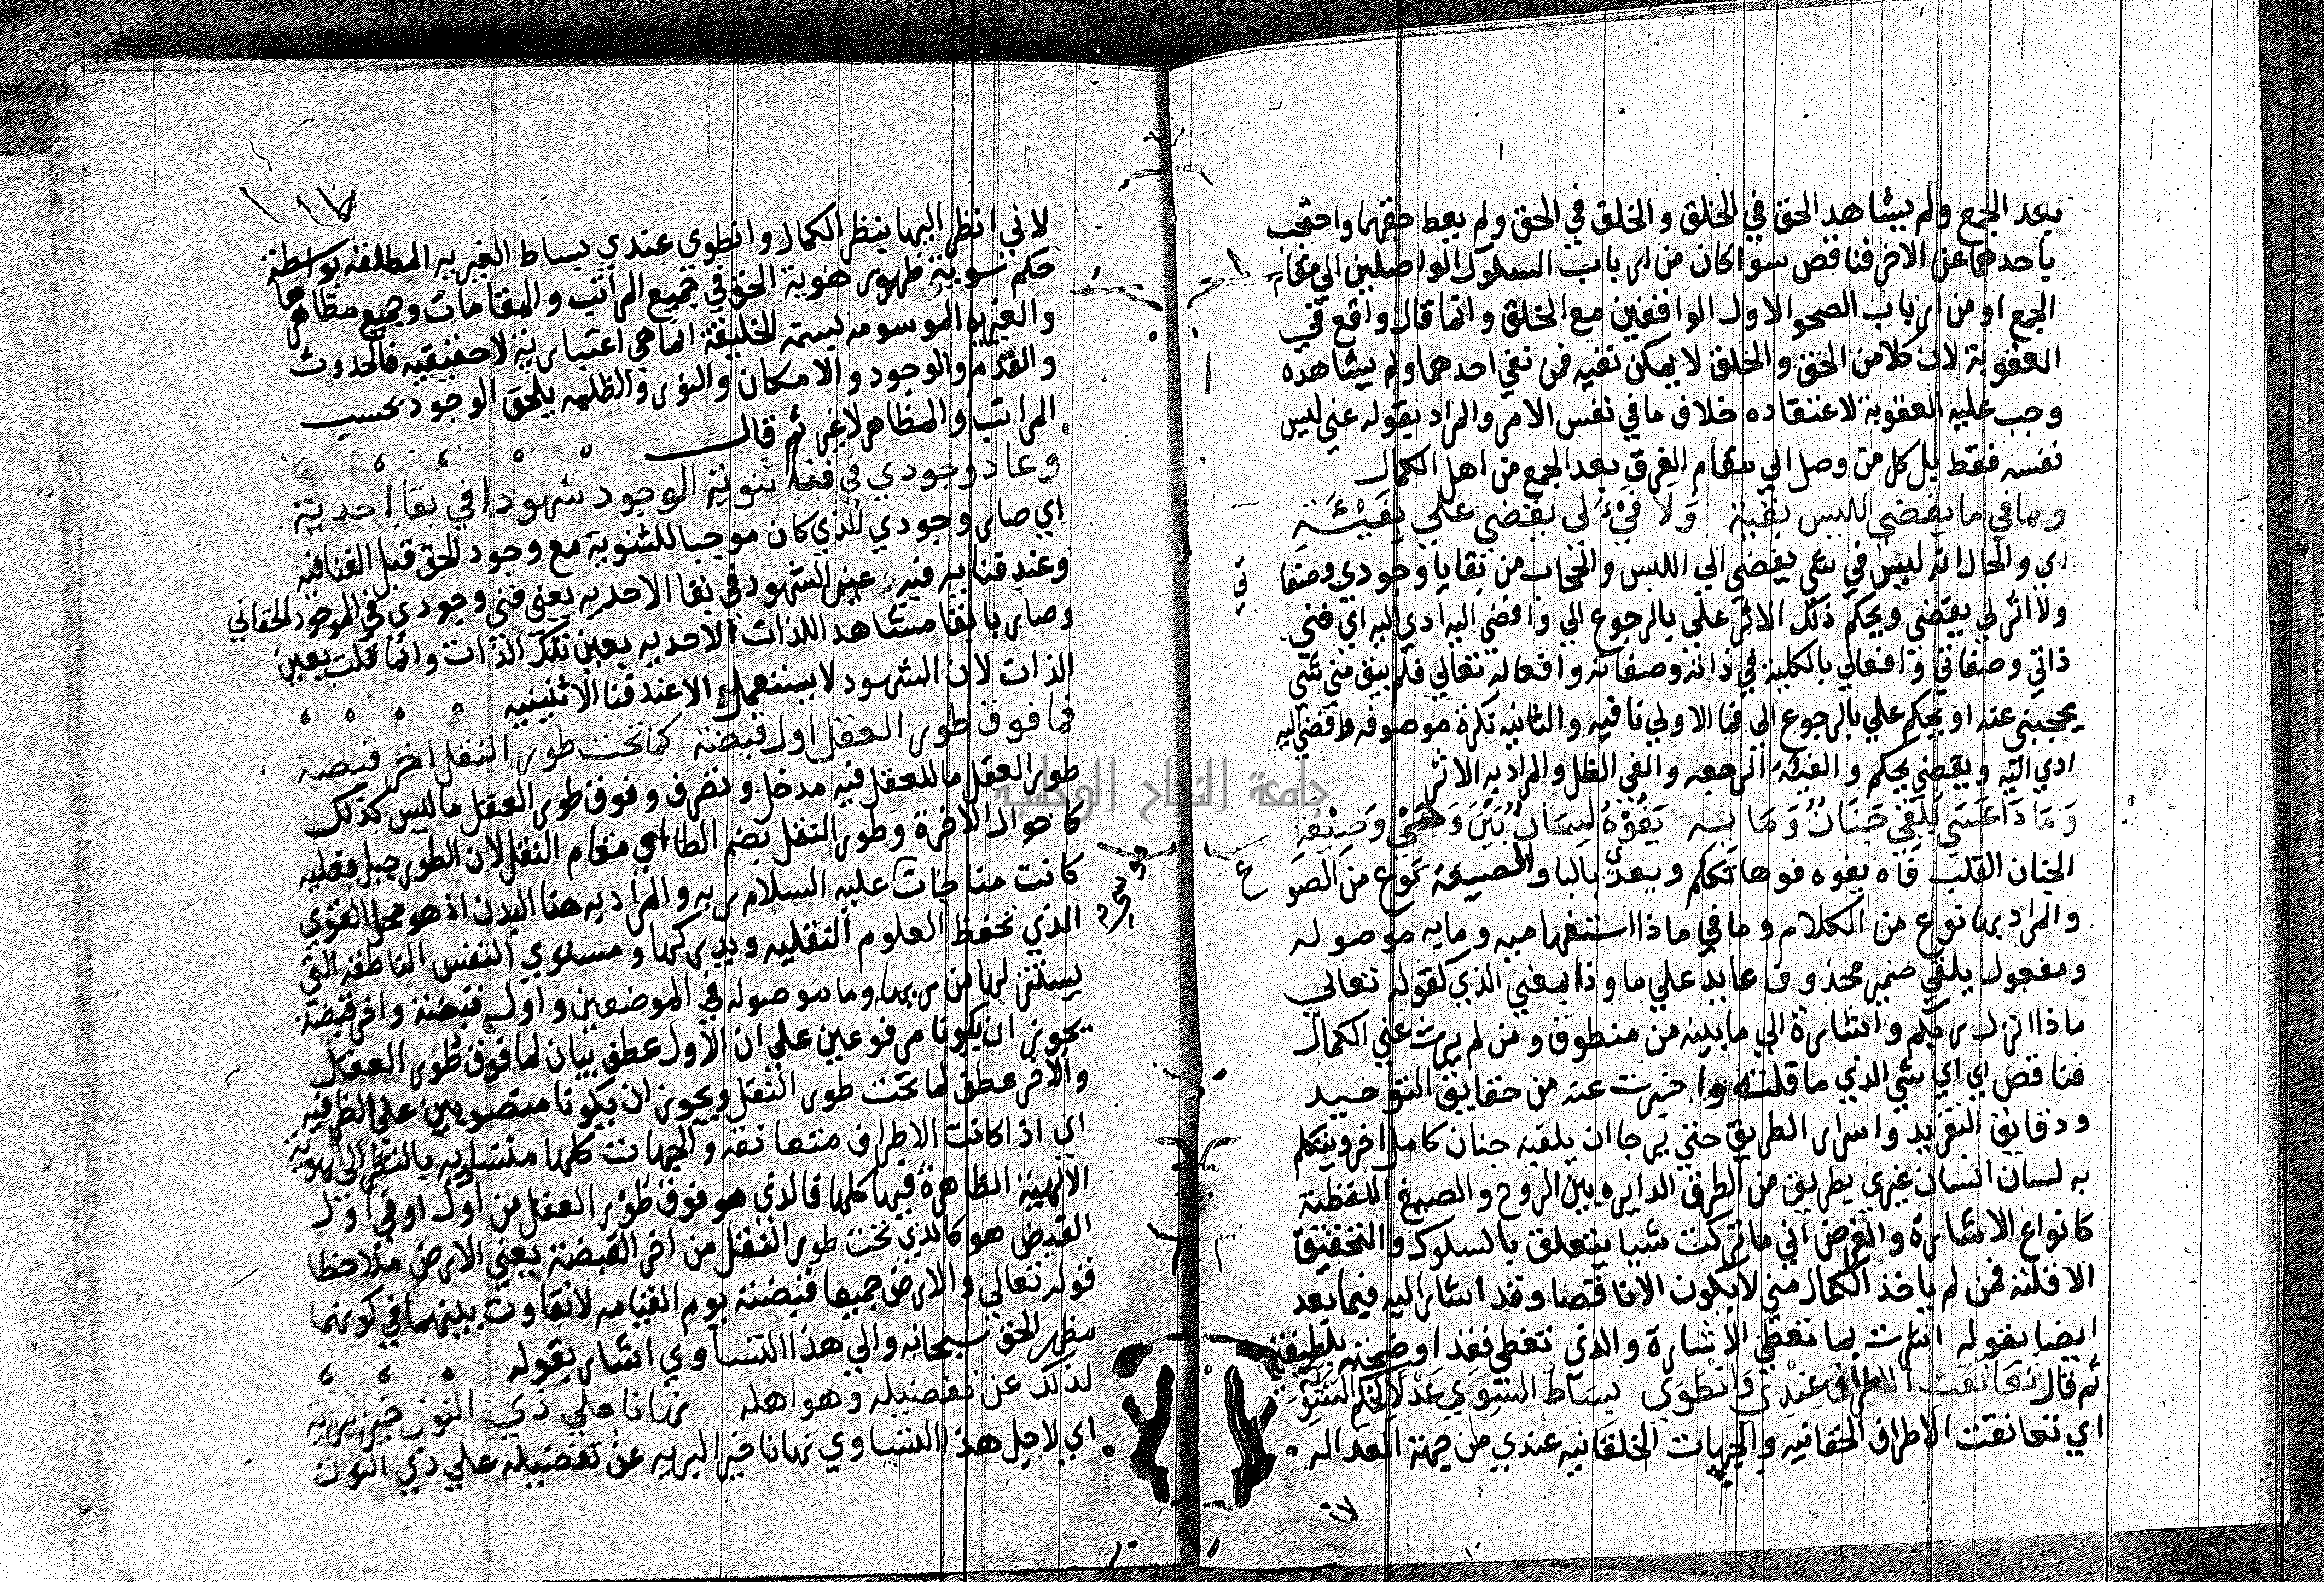 بعد الجمع ولم يشاهد الحق في الخلق والخلق في الحق ولم يعط حقهما واحتجب
باحدهما عن الاخر فناقص سوا كان من ارباب السلوك الواصلين الي مقام
الجمع او من ارباب الصحو الاول الواقفين مع الخلق وانما قال واقع في
العقوبة لان كلا من الحق والخلق لا يمكن نفيه فمن نفي احدهما ولم يشاهده
وجب عليه العقوبة لاعتقاده خلاف ما في نفس الامر والمراد بقوله عني ليس
نفسه فقط بل كل من وصل الي مقام الفرق بعد الجمع من اهل الكمال
وما في ما يفضي للبس بقية ولا فيء لي يقضي علي بفيئة
اي والحال انه ليس في شي يفضي الي اللبس والحجاب من بقايا وجودي وصفا
تي
ولا اثر لي يقضي ويحكم ذلك الاثر علي بالرجوع الي وافضي اليه ادي اليه اي فني
ذاتي وصفاتي وافعالي بالكلية في ذاته وصفاته وافعاله تعالي فلم يبق مني شي
يحجبني عنه او يحكم علي بالرجوع الي فما الاولي نافيه والثانيه نكرة موصوفه وافضي اليه
ادي اليه ويقضي يحكم والفيئة الرجعه والفي الظل والمراد به الاثر
جامعة النجاح الوطنية
وماذا عسي يلقي جنان وما به يفوه لسان بين وحي وصيغة
الجنان القلب فاه يفوه فوها تكلم ويعدي بالبا والصيغة نوع من الصو
غ
والمراد بها نوع من الكلام وما في ماذا استفهاميه وما به موصوله
ومفعول يلقي ضمير محذوف عايد علي ما وذا بمعني الذي كقوله تعالي
ماذا انزل ربكم واشارة الي ما بينه من منطوق ومن لم يرث عني الكمال
فناقص اي اي شي الذي ما قلته وا خبرت عنه من حقايق التوحيد
ودقايق التفريد واسرار الطريق حتي يرجا ان يلقيه جنان كامل اخر ويتكلم
به لسان انسان غيري بطريق من الطرق الدايره بين الروح والصيغ اللفظية
كانواع الاشارة والغرض اني ما تركت شيا يتعلق بالسلوك والتحقيق
الا قلته فمن لم ياخذ الكمال مني لا يكون الا ناقصا وقد اشار اليه فيما بعد
ايضا بقوله اشرت بما تعطي الاشارة والذي تغطي فقد اوضحته بلطيفة
ثم قال تعانقت الاطراف عندي وانطوي بساط السوي عدلا بحكم السوية
اي تعانقت الاطراف الحقانيه والجهات الخلقانيه عندي من جهة العداله
لا ني
لاني انظر اليها بنظر الكمال وانطوي عندي بساط الغيريه المطلقه بواسطة
حكم سوية ظهور هوية الحق في جميع المراتب والمقامات وجميع مظاهرها
والغيريه الموسومه بسمة الخليقة انما هي اعتبارية لا حقيقيه فالحدوث
والقدم والوجود والامكان والنور والظلمه يلحق الوجود بحسب
المراتب والمظاهر لا غير ثم قال
وعاد وجودي في فنا ثنوية الوجود شهودا في بقا احدية
اي صار وجودي الذي كان موجبا للثنوية مع وجود الحق قبل الفنا فيه
وعند فنايه فيه عين الشهود في بقا الاحديه يعني فني وجودي في الوجود الحقاني
وصار بالبقا مشاهدا للذات الاحديه بعين تلك الذات وانما قلت بعين
الذات لان الشهود لا يستعمل الا عند فنا الاثنينيه
فما فوق طور العقل اول قبضة كما تحت طور النقل اخر قبضة
طور العقل ما للعقل فيه مدخل وتصرف وفوق طور العقل ما ليس كذلك
كاحوال الاخرة وطور النقل بضم الطا اي مقام النقل لان الطور جبل وعليه
كانت مناجات عليه السلام ربه والمراد به هنا البدن اذ هو محل القوي
الذي تحفظ العلوم النقليه ويدركها ومستوي النفس الناطقه التي
يستنزلها من ربها وما موصوله في الموضعين واول قبضة واخر قبضة
يجوز ان يكونا مرفوعين علي ان الاول عطف بيان لما فوق طور العقل
والاخر عطف لما تحت طور النقل ويجوز ان يكونا منصوبين علي الظرفيه
اي اذا كانت الاطراف متعانقه والجهات كلها متساويه بالنظر الي الهوية
الالهية الظاهرة فيها كلها فالذي هو فوق طور العقل من اول او في اول
القبض هو كالذي تحت طور النقل من اخر القبضة يعني الارض ملاحظا
قوله تعالي والارض جميعا قبضته يوم القيامه لا تفاوت بينهما في كونهما
مظهر الحق سبحانه والي هذا التساوي اشار بقوله
لذلك عن تفضيله وهو اهله نهانا علي ذي النون خير البرية
اي لاجل هذا التساوي نهانا خير البريه عن تفضيله علي ذي النون